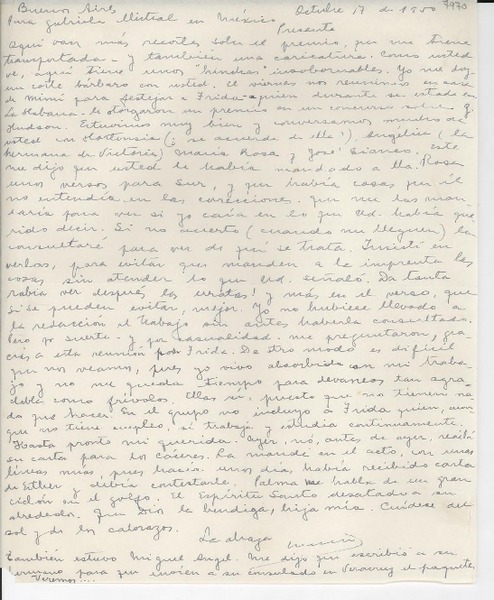 Buenos Aires Octubre 17 de 1950 7970
Para Gabriela Mistral en México
Presente
Aquí van más recortes sobre el premio, que me tiene
transportada - y también una caricatura. Como usted
ve, aquí tiene unos "hinchas" insobornables. Yo me doy
un corte bárbaro con usted. El viernes nos reunimos en casa
de Mimí para festejar a Frida a quien durante su estada en
La Habana - le otorgaron un premio en un concurso sobre G.
Hudson. Estuvimos muy bien y conversamos mucho de
usted con Hortensia (¿se acuerda de ella?), Angélica (la
hermana de Victoria) María Rosa y José Bianco. Este
me dijo que usted le había mandado a Ma. Rosa
unos versos para Sur, y que había cosas que él
no entendía en las correcciones. Que me las man-
daría para ver si yo caía en lo que Ud. había que-
rido decir. Si no acierto (cuando me lleguen) la
consultaré para ver de qué se trata. Insistí en
verlos, para evitar que manden a la imprenta las
cosas sin atender lo que Ud. señaló. Da tanta
rabia ver después las erratas! y más en el verso, que
si se pueden evitar, mejor. Yo no hubiese llevado a
la redacción el trabajo sin antes haberla consultado.
Pero por suerte - y por casualidad - me preguntaron, gra-
cias a esta reunión por Frida. De otro modo es difícil
que nos veamos, pues yo vivo absorbida con mi traba-
jo y no me queda tiempo para devaneos tan agra-
dables como frívolos. Ellas sí, puesto que no tienen na-
da que hacer. En el grupo no incluyo a Frida quien, aun-
que no tiene empleo, sí trabaja y estudia continuamente.
Hasta pronto mi querida. Ayer, no, antes de ayer, recibí
su carta para los Cáceres. La mandé en el acto, con unas
líneas mías, pues hacía unos días, había recibido carta
de Esther y debía contestarle. Palma me habla de un gran
ciclón en el golfo. El Espíritu Santo desatado a su
alrededor. Que Dios la bendiga, hija mía. Cuídese del
sol y de los calorazos.
La abraza
También estuvo Miguel Angel. Me dijo que escribió a su
hermano para que envíen a su consulado en Veracruz el paquete.
Veremos....